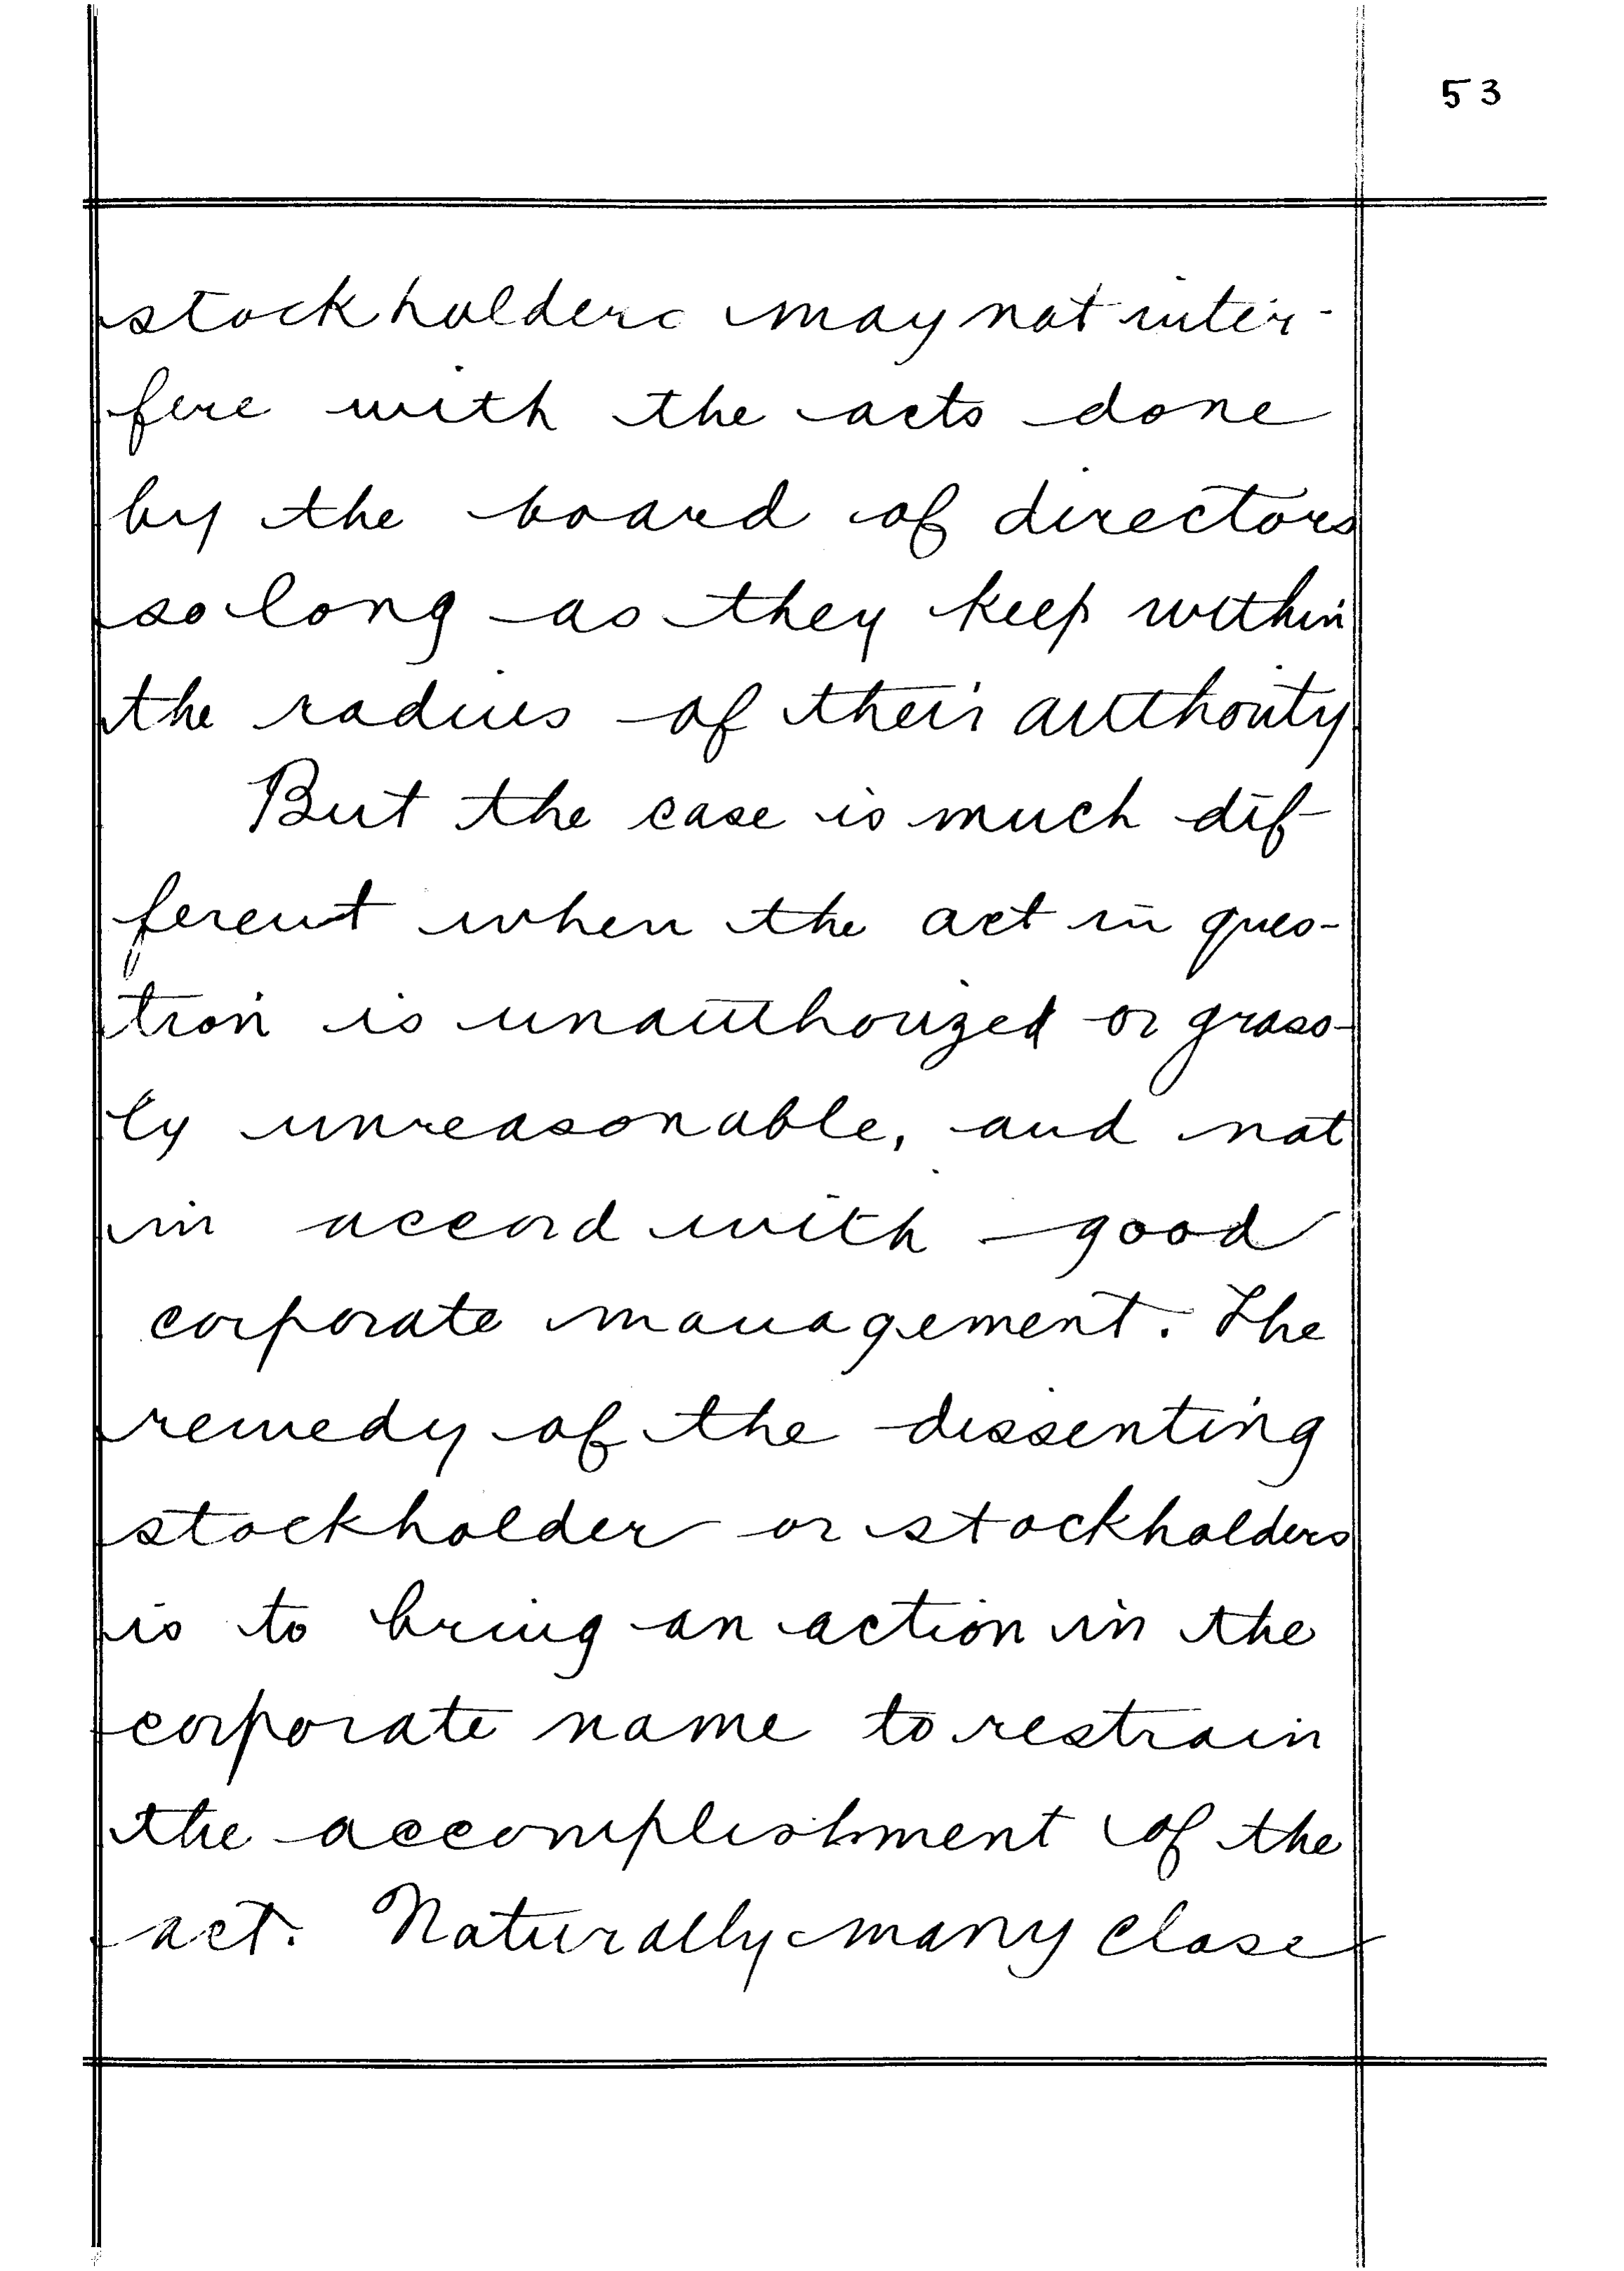 53
stockholders may not inter-
fere with the acts done
by the board of directors
so long as they keep within
the radius of their authority
But the case is much dif-
ferent when the act in ques-
tion is unauthorized or gross-
ly unreasonable, and not
in accord with good
corporate management. The
remedy of the dissenting
stockholder or stockholders
is to bring an action in the
corporate name to restrain
the accomplishment of the
act. Naturally many close